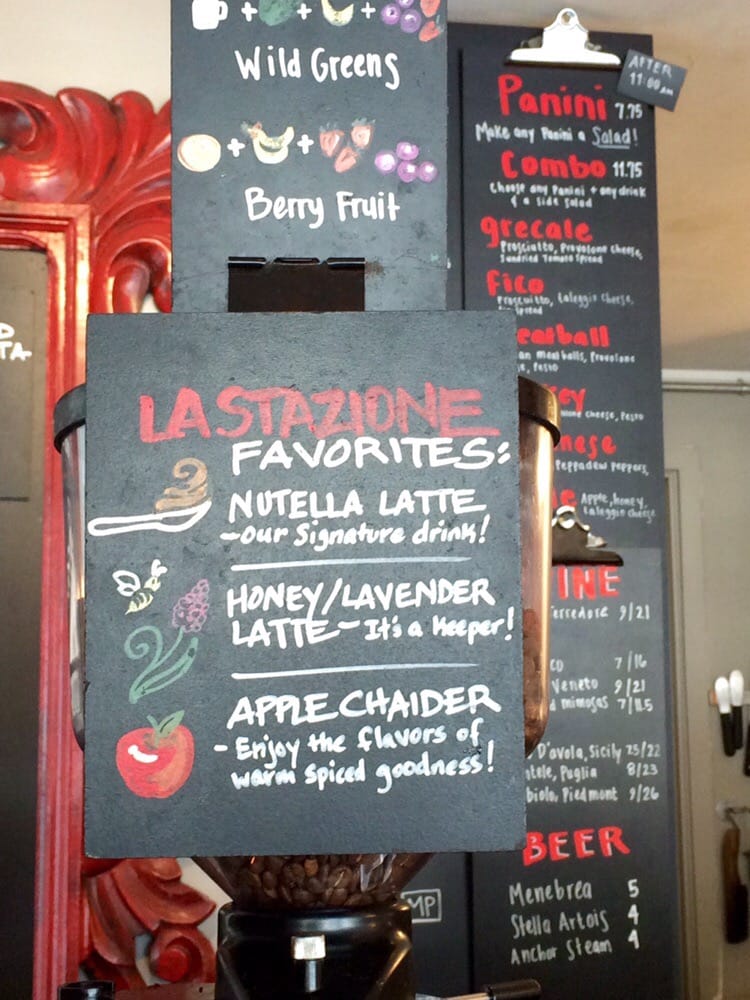 Wild Greens
Berry Fruit
LA STAZIONE
FAVORITES:
NUTELLA LATTE
-Our Signature drink!
HONEY/LAVENDER
LATTE - It's a Keeper!
APPLE CHAIDER
- Enjoy the flavors of
warm spiced goodness!
AFTER
11:00 AM
Panini 7.75
Make any Panini a Salad!
Combo 11.75
Choose any Panini + any drink
& a side salad
grecale
Prosciutto, Provolone Cheese,
Sundried Tomato Spread
Fico
Prosciutto, taleggio cheese,
Spread
eatball
an meatballs, Provolone
Pesto
ey
cheese, Pesto
nese
Peppadew Peppers,
e Apple, honey,
taleggio cheese
INE
9/21
co 7/16
Veneto 9/21
d mimosas 7/11.5
D'avola, Sicily 25/22
Puglia 8/23
biola, Piedmont 9/26
BEER
Menebrea 5
Stella Artois 4
Anchor Steam 4
MP
TA